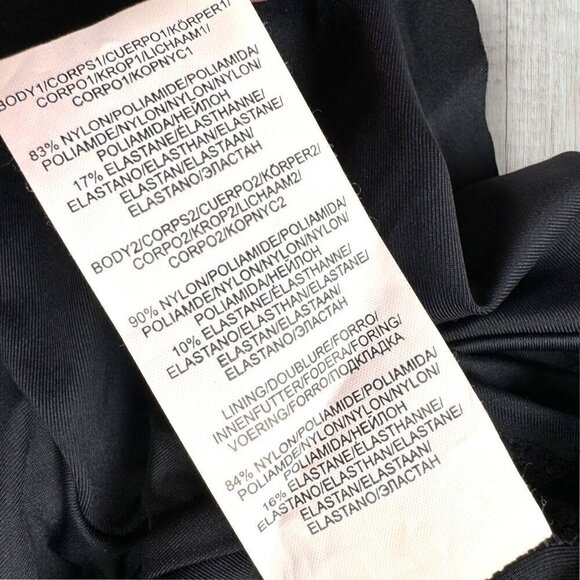 BODY1/CORPS1/CUERPO1/KÖRPER1/
CORPO1/KROP1/LICHAAM1/
CORPO1/КОРПУС1
83% NYLON/POLIAMIDE/POLIAMIDA/
POLIAMDE/NYLON/NYLON/NYLON/
POLIAMIDA/НЕЙЛОН
17% ELASTANE/ÉLASTHANNE/
ELASTANO/ELASTHAN/ELASTANE/
ELASTAN/ELASTAAN/
ELASTANO/ЭЛАСТАН
BODY2/CORPS2/CUERPO2/KÖRPER2/
CORPO2/KROP2/LICHAAM2/
CORPO2/КОРПУС2
90% NYLON/POLIAMIDE/POLIAMIDA/
POLIAMDE/NYLON/NYLON/NYLON/
POLIAMIDA/НЕЙЛОН
10% ELASTANE/ÉLASTHANNE/
ELASTANO/ELASTHAN/ELASTANE/
ELASTAN/ELASTAAN/
ELASTANO/ЭЛАСТАН
LINING/DOUBLURE/FORRO/
INNENFUTTER/FODERA/FORING/
VOERING/FORRO/ПОДКЛАДКА
84% NYLON/POLIAMIDE/POLIAMIDA/
POLIAMDE/NYLON/NYLON/NYLON/
POLIAMIDA/НЕЙЛОН
16% ELASTANE/ÉLASTHANNE/
ELASTANO/ELASTHAN/ELASTANE/
ELASTAN/ELASTAAN/
ELASTANO/ЭЛАСТАН